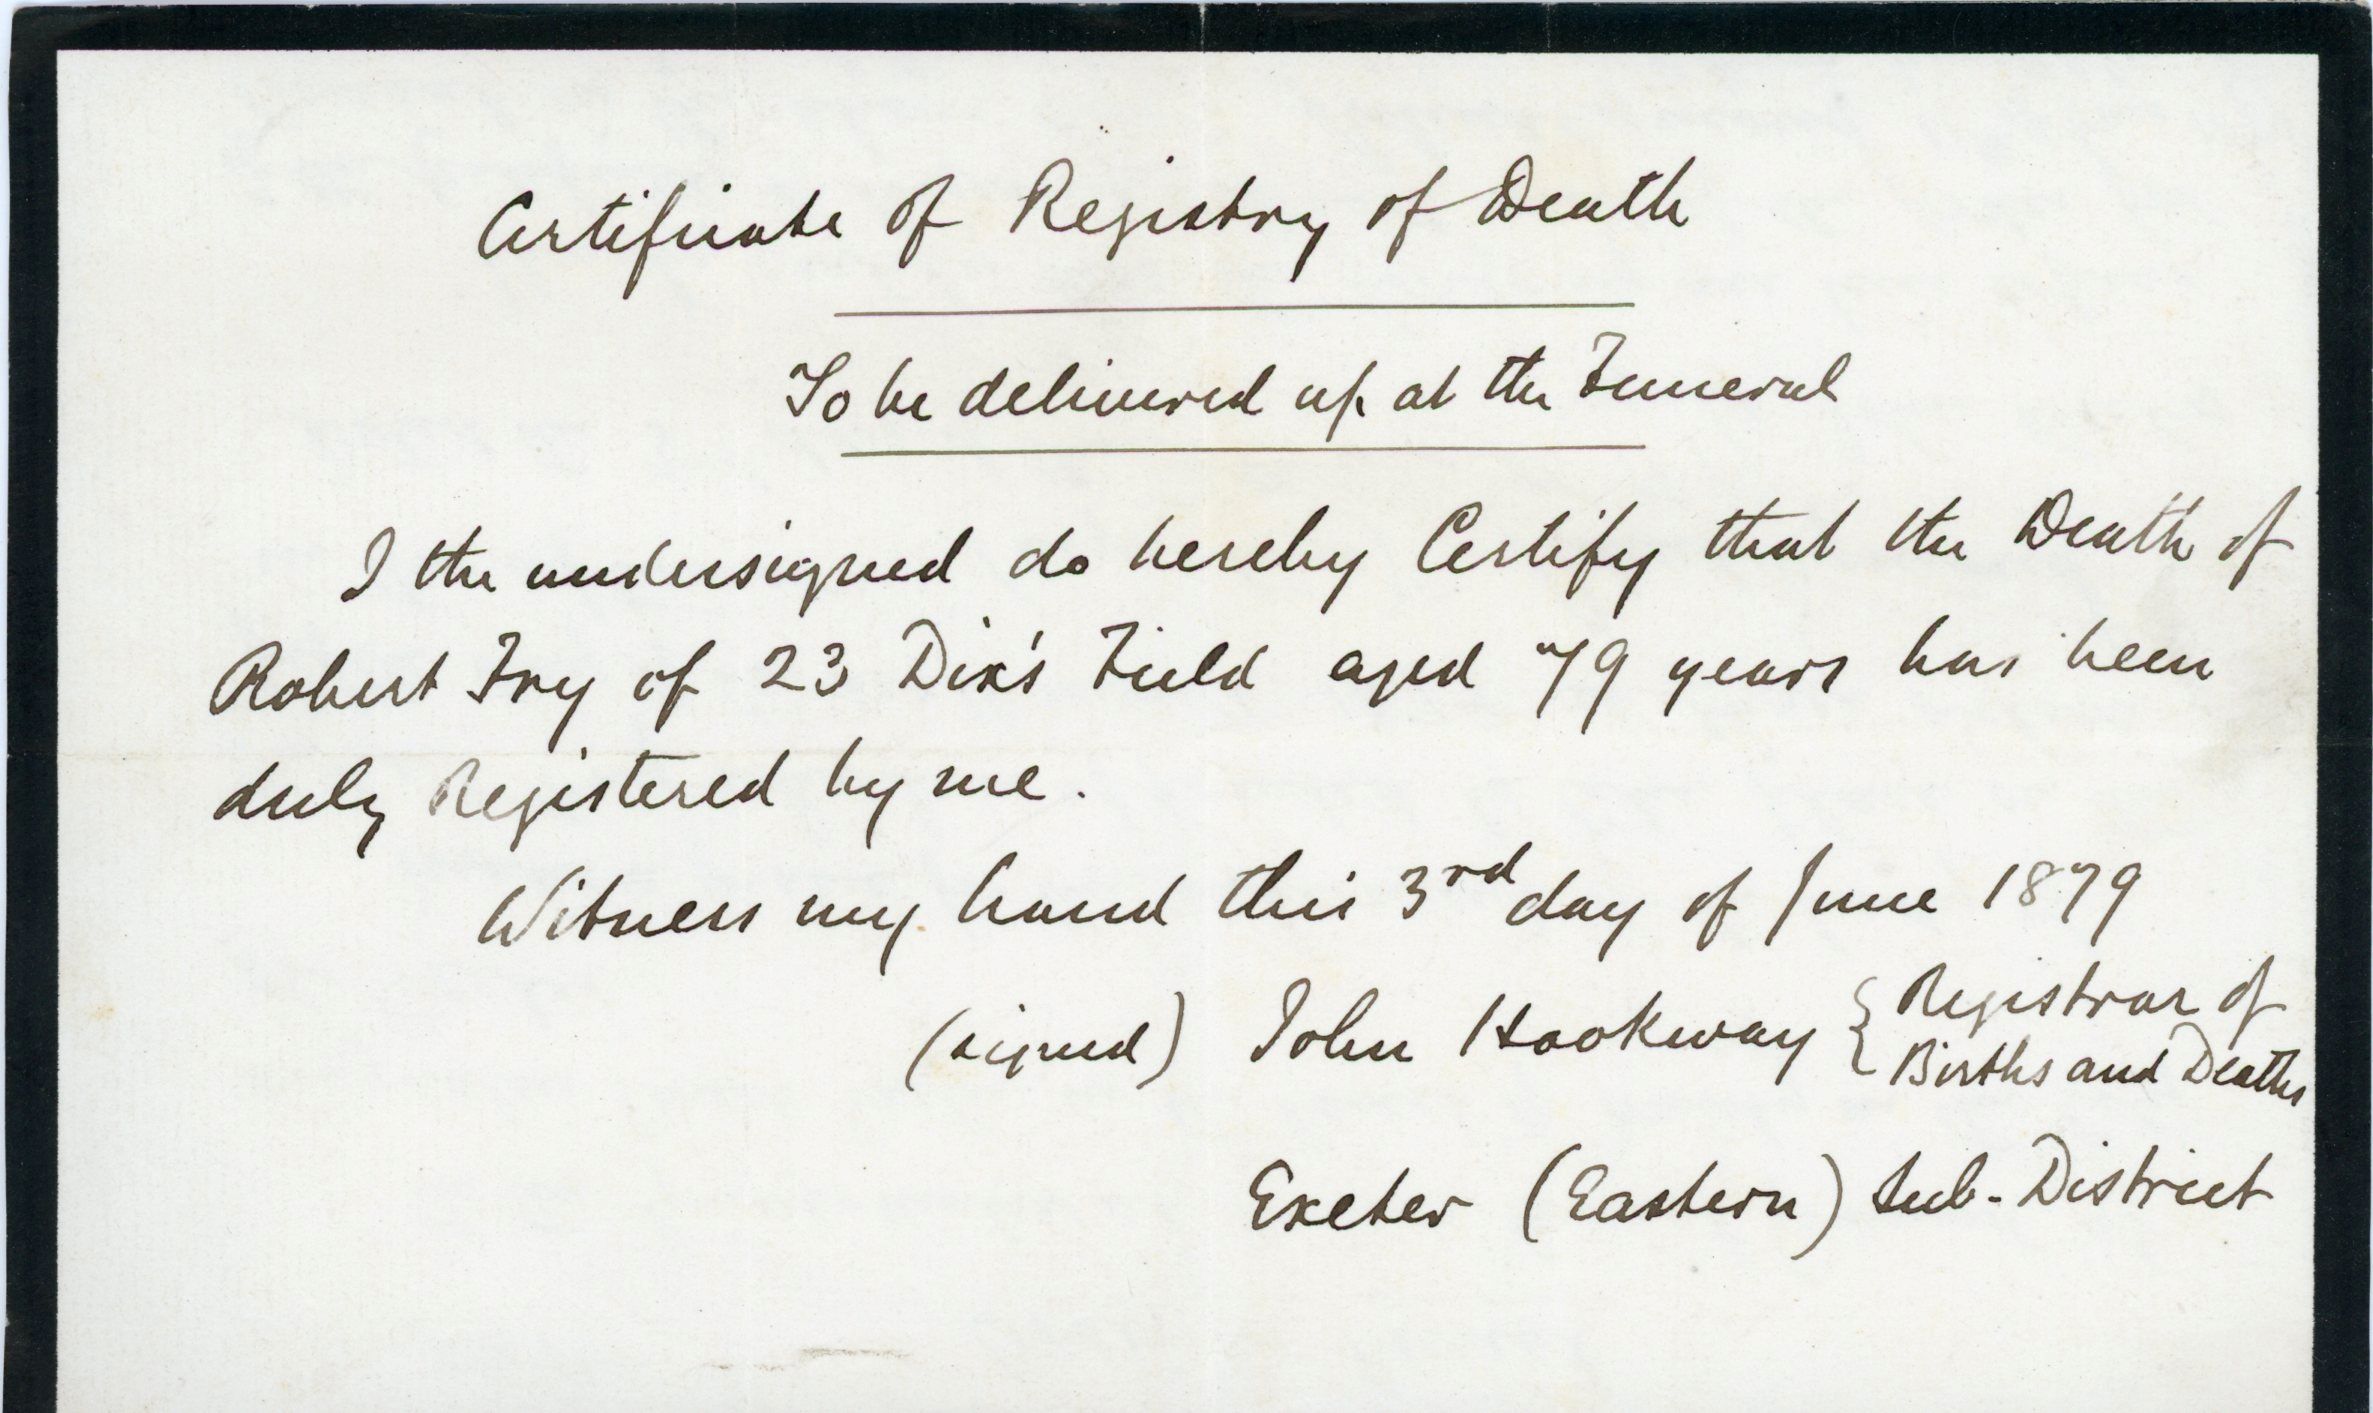 Certificate of Registry of Death
To be delivered up at the Funeral
I the undersigned do hereby Certify that the Death of
Robert Fry of 23 Dix's Field aged 79 years has been
duly Registered by me.
Witness my hand this 3rd day of June 1879
(signed) John Hookway { Registrar of
Births and Deaths
Exeter (Eastern) Sub-District